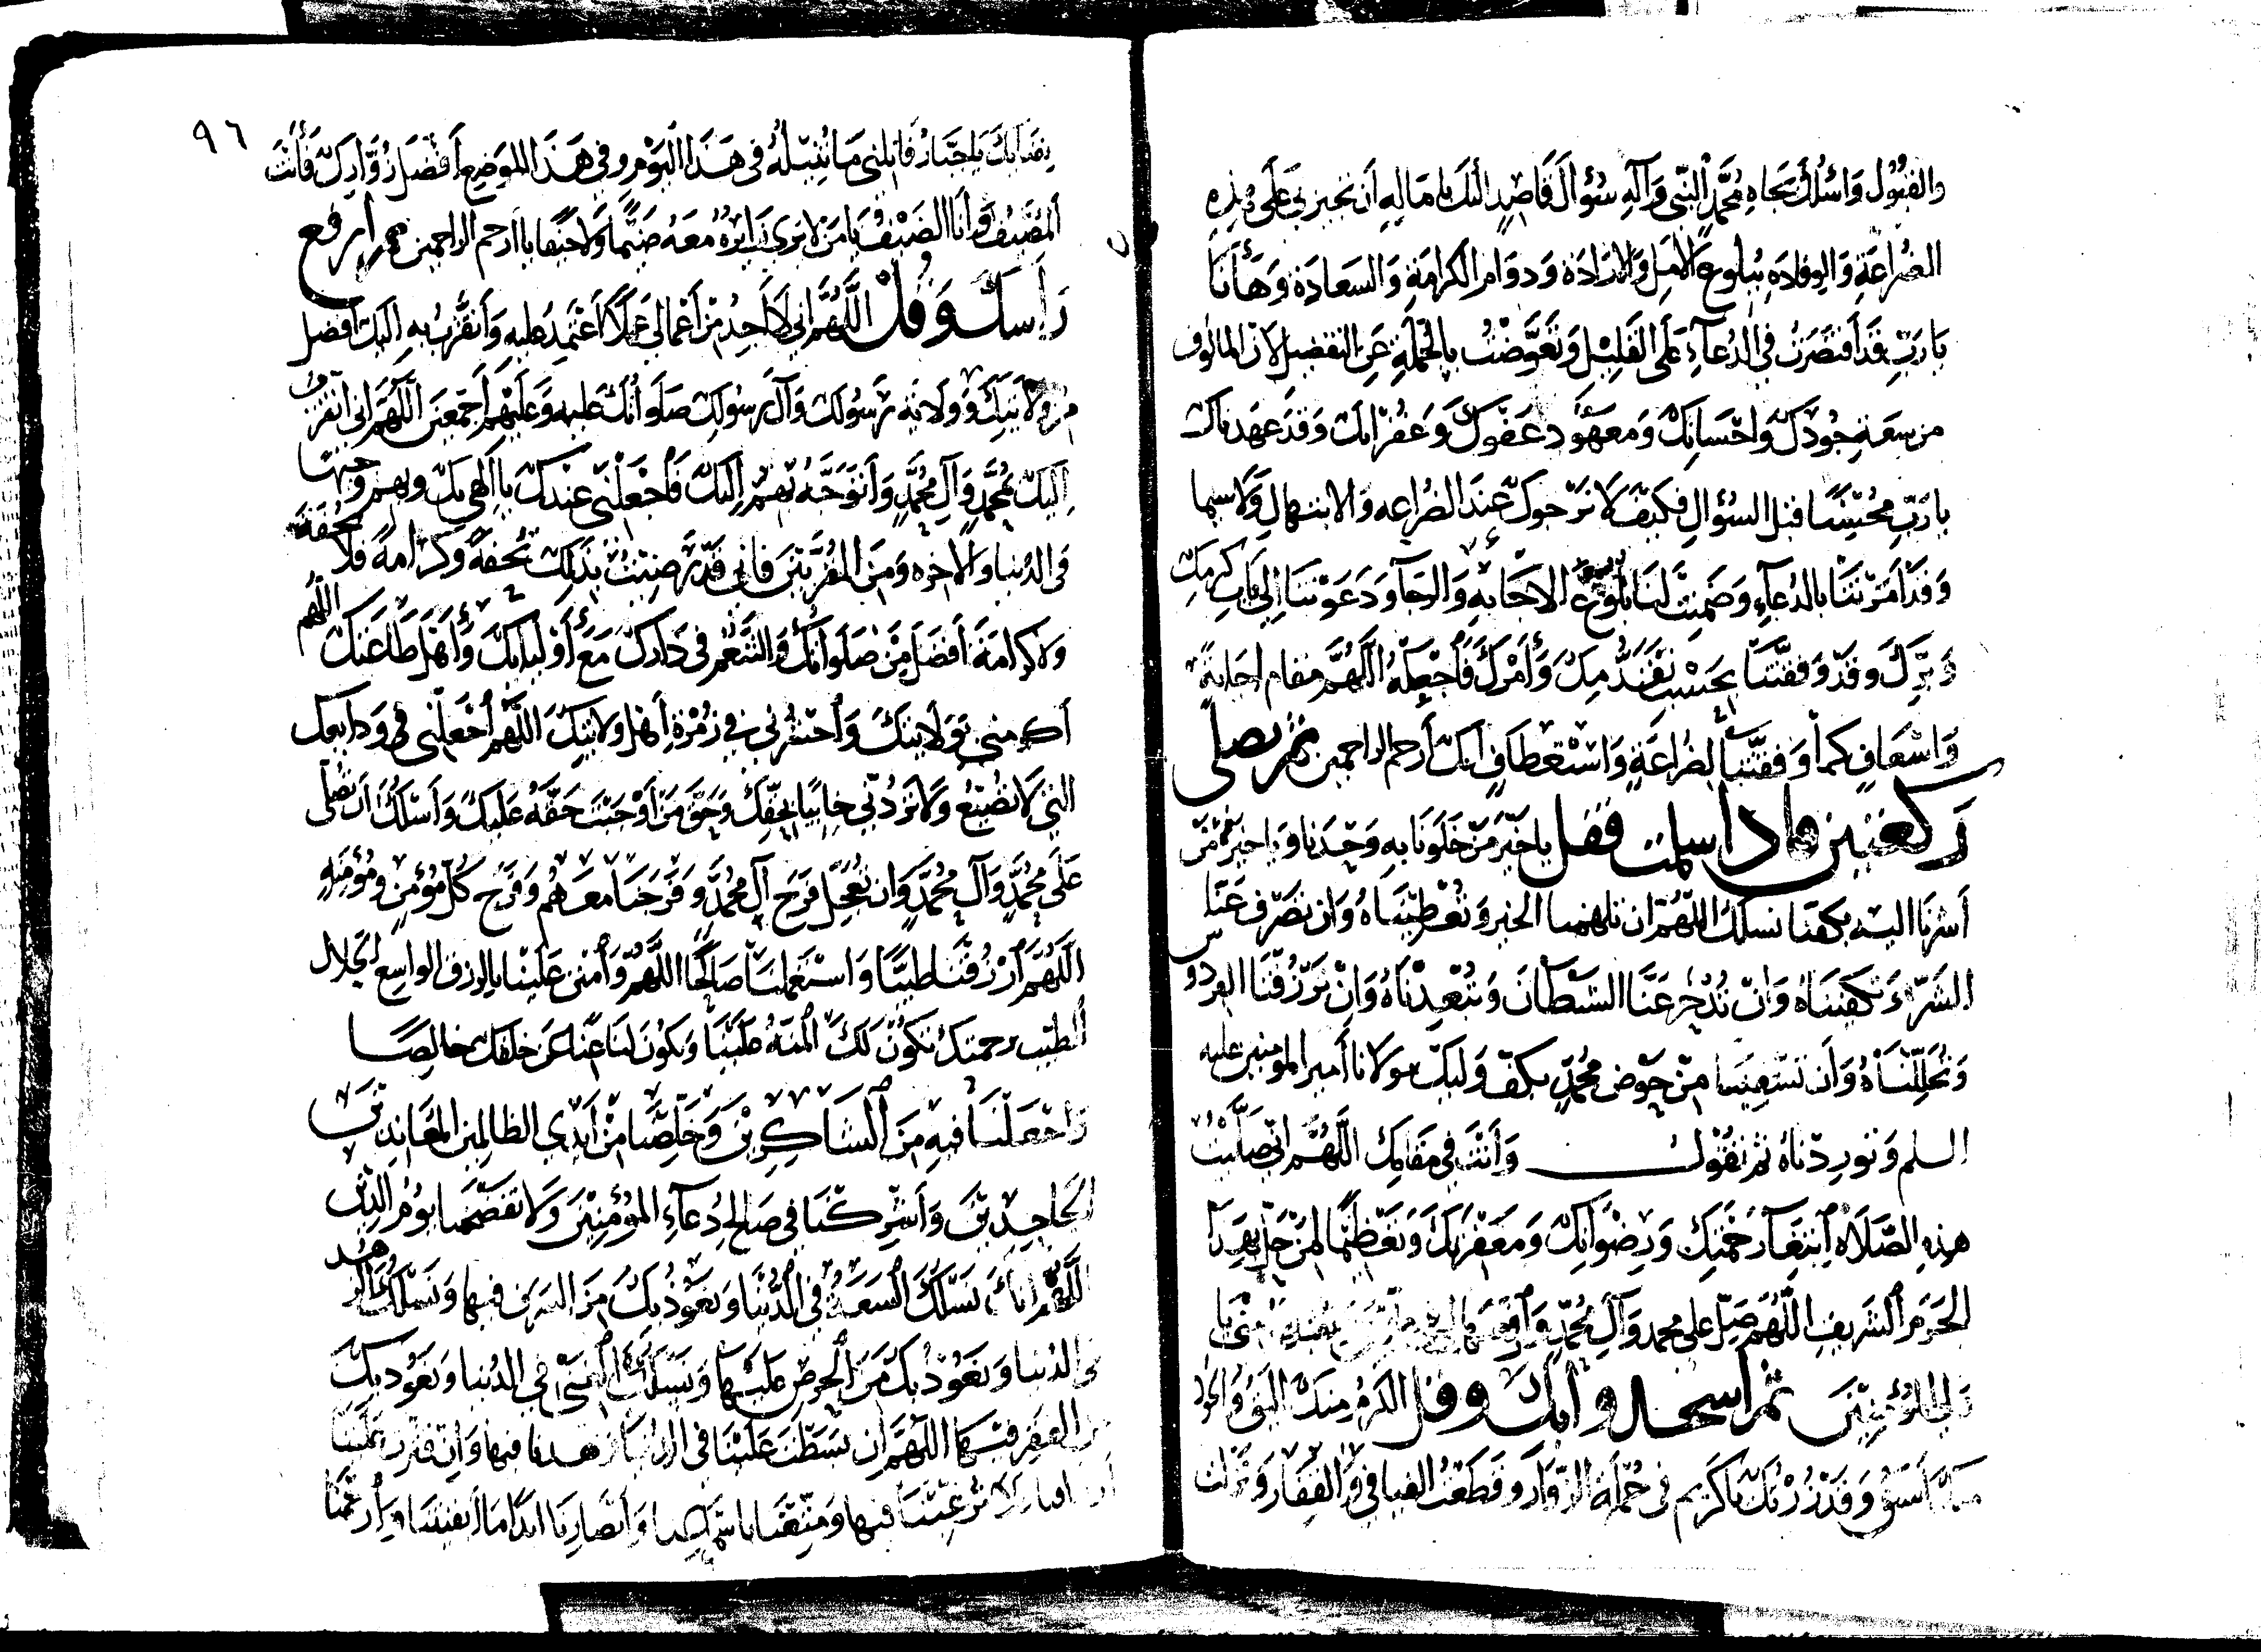 والقبول وأسئلك بجاه محمد النبي وآله سؤال قاصد إليك بآماله أن تجيزني على هذه
الضراعة والوفادة ببلوغ الأمل والإرادة ودوام الكرامة والسعادة وها أنا
يا رب قد اقتصرت في الدعاء على القليل وتعوضت بالجملة عن التفصيل لأن المألوف
من سعة جودك وإحسانك ومعهود عفوك وغفرانك وقد عهدناك
يا رب محسنا قبل السؤال فكيف لا نرجوك عند الضراعة والابتهال ولا سيما
وقد أمرتنا بالدعاء وضمنت لنا بلوغ الإجابة والرجاء ودعوتنا إلى باب كرمك
وبرك وقد وفقتنا بحسب تقدمك وأمرك فاجعله اللهم مقام إجابة
وإسعاف كما وفقتنا لضراعة واستعطاف إنك أرحم الراحمين ثم تصلي
ركعتين فإذا سلمت فقل يا خير من خلونا به وحدنا ويا خير من
أشرنا إليه بكفنا نسئلك اللهم أن تلهمنا الخير وتعطيناه وأن تصرف عنا
الشر وتكفيناه وأن تدحر عنا الشيطان وتبعدناه وأن ترزقنا الفردوس
وتحللناه وأن تسقينا من حوض محمد بكف وليك مولانا أمير المؤمنين عليه
السلم وتوردناه ثم تقول وأنت في مقامك اللهم إني صليت
هذه الصلاة ابتغاء رحمتك ورضوانك ومغفرتك وتعظيما لمن حل بهذا
الحرم الشريف اللهم صل على محمد وآل محمد
للمؤمنين ثم اسجد وابك وقل اكرم منك البقي والجود
أسبق وقد زرتك يا كريم في جملة الزوار وقطعت الفيافي والقفار ونزلت
بفنائك يا جبار فأنلني ما تنيله في هذا اليوم وفي هذا الموضع أفضل زوارك فأنت
٩٦
المضيف وأنا الضيف يا من لا يرى زايره معه ضيما ولا حيفا يا أرحم الراحمين ثم ارفع
رأسك وقل اللهم إني لا أجد من أعمالي عملا أعتمد عليه وأتقرب به إليك أفضل
من ولايتك وولاية رسولك وآل رسولك صلواتك عليه وعليهم أجمعين اللهم إني أتقرب
إليك بمحمد وآل محمد وأتوجه بهم إليك فاجعلني عندك يا إلهي بك وبهم وجيها
في الدنيا والآخرة ومن المقربين فإني قد رضيت بذلك تحفة وكرامة فلا تحفة
ولا كرامة أفضل من صلواتك والتنعم في دارك مع أوليائك وأهل طاعتك اللهم
أكرمني بولايتك واحشرني في زمرة أهل ولايتك اللهم اجعلني في ودائعك
التي لا تضيع ولا تردني خائبا بحقك وحق من أوجبت حقه عليك وأسئلك أن تصلي
على محمد وآل محمد وأن تعجل فرج آل محمد وفرجنا معهم وفرج كل مؤمن ومؤمنة
اللهم ارزقنا طيبا واستعملنا صالحا اللهم وامنن علينا بالرزق الواسع الحلال
الطيب برحمتك تكون لك المنة علينا ويكون لنا غنا عن خلقك خالصا
واجعلنا فيه من الشاكرين وخلصنا من أيدي الظالمين المعاندين
الجاحدين وأشركنا في صالح دعاء المؤمنين ولا تفضحنا يوم الدين
اللهم إنا نسئلك السعة في الدنيا ونعوذ بك من السرف فيها ونسئلك الزهد
في الدنيا ونعوذ بك من الحرص عليها ونسئلك الغنى في الدنيا ونعوذ بك
من الفقر فيها اللهم إن بسطت علينا في الدنيا فزهدنا فيها وإن قترت علينا
فلا ترغبنا فيها ومتعنا بأسماعنا وأبصارنا أبدا ما أبقيتنا وارحمنا